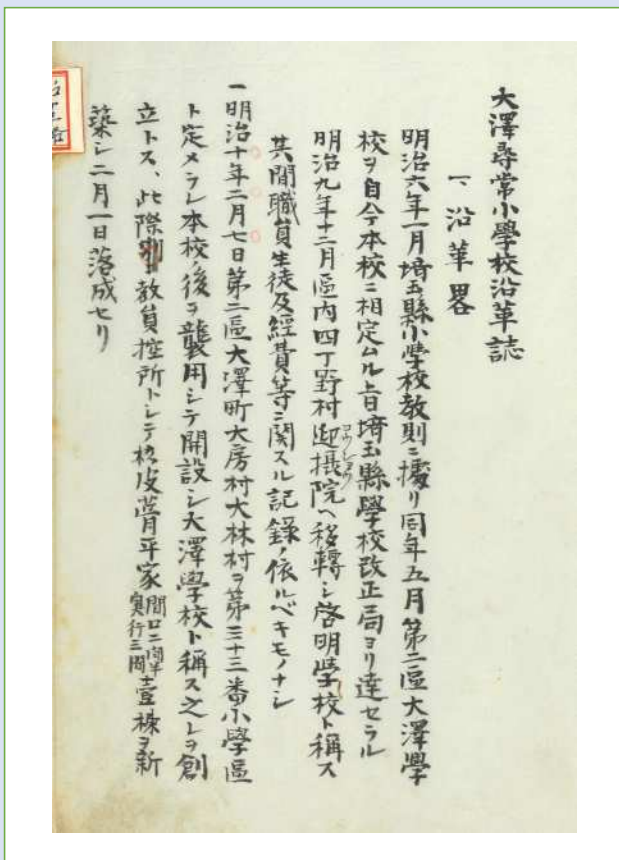 大澤尋常小學校沿革誌
一、沿革畧
明治六年一月埼玉縣小學校教則ニ據リ同年五月第二區大澤學
校ヲ自今本校ニ相定ムル旨埼玉縣學校改正局ヨリ達セラル
明治九年十二月區内四丁野村迎摂院ヘ移轉シ啓明學校ト稱ス
コウショウ
其間職員生徒及經費等ニ関スル記錄ノ依ルベキモノナシ
一明治十年二月七日第二區大澤町大房村大林村ヲ第三十三番小學區
ト定メラレ本校ノ後ヲ襲用シテ開設シ大澤學校ト稱ス之レヲ創
立トス、此際別ニ教員控所トシテ杉皮葺平家間口二間半奥行三間壹棟ヲ新
築シ二月一日落成セリ